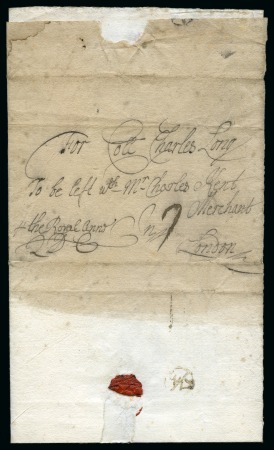 For Coll: Charles Long
To be left wth. Mr Charles Kent
Merchant
the Royal Anne In
London